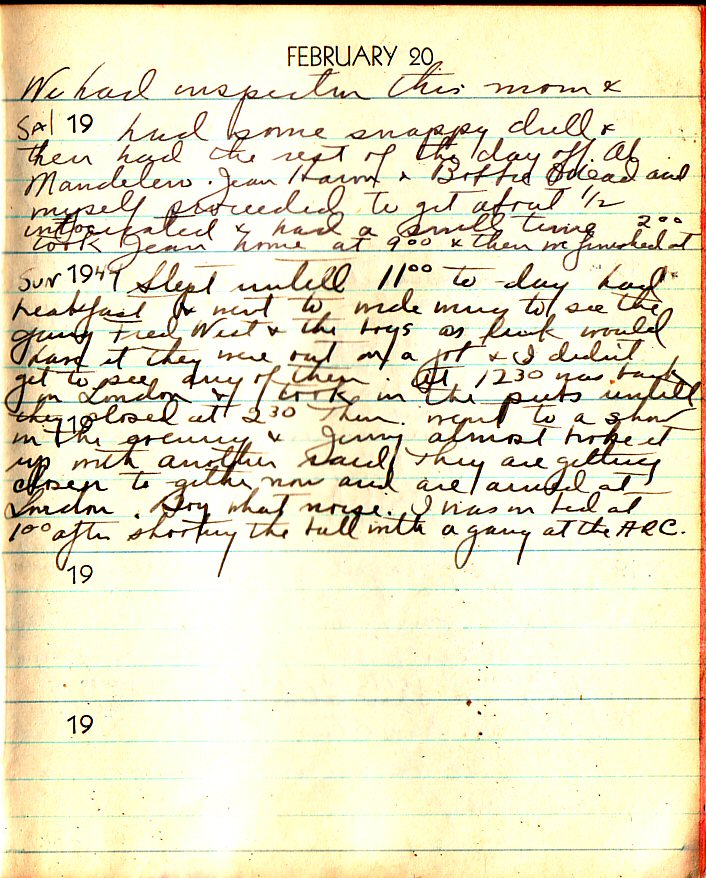 FEBRUARY 20
We had inspection this morn &
Sat 19 had some snappy drill &
then had the rest of the day off. Al
Jean & and
myself proceeded to get about 1/2
intoxicated & had a small time 2⁰⁰
took Jean home at 9⁰⁰ & then we finished at
Sun 1944 Slept untill 11⁰⁰ to-day had
breakfast & went to to see the
gang Fred West & the boys as luck would
have it they were out on a job & I didn't
get to see any of them. At 1230 was back
in London & took in the pubs untill
they closed at 2³⁰ then went to a show
19
in the & Jerry almost broke it
up with another raid, They are getting
closer to gether now and are aimed at
London. Boy what noise. I was in bed at
1⁰⁰ after shooting the bull with a gang at the ARC.
19
19